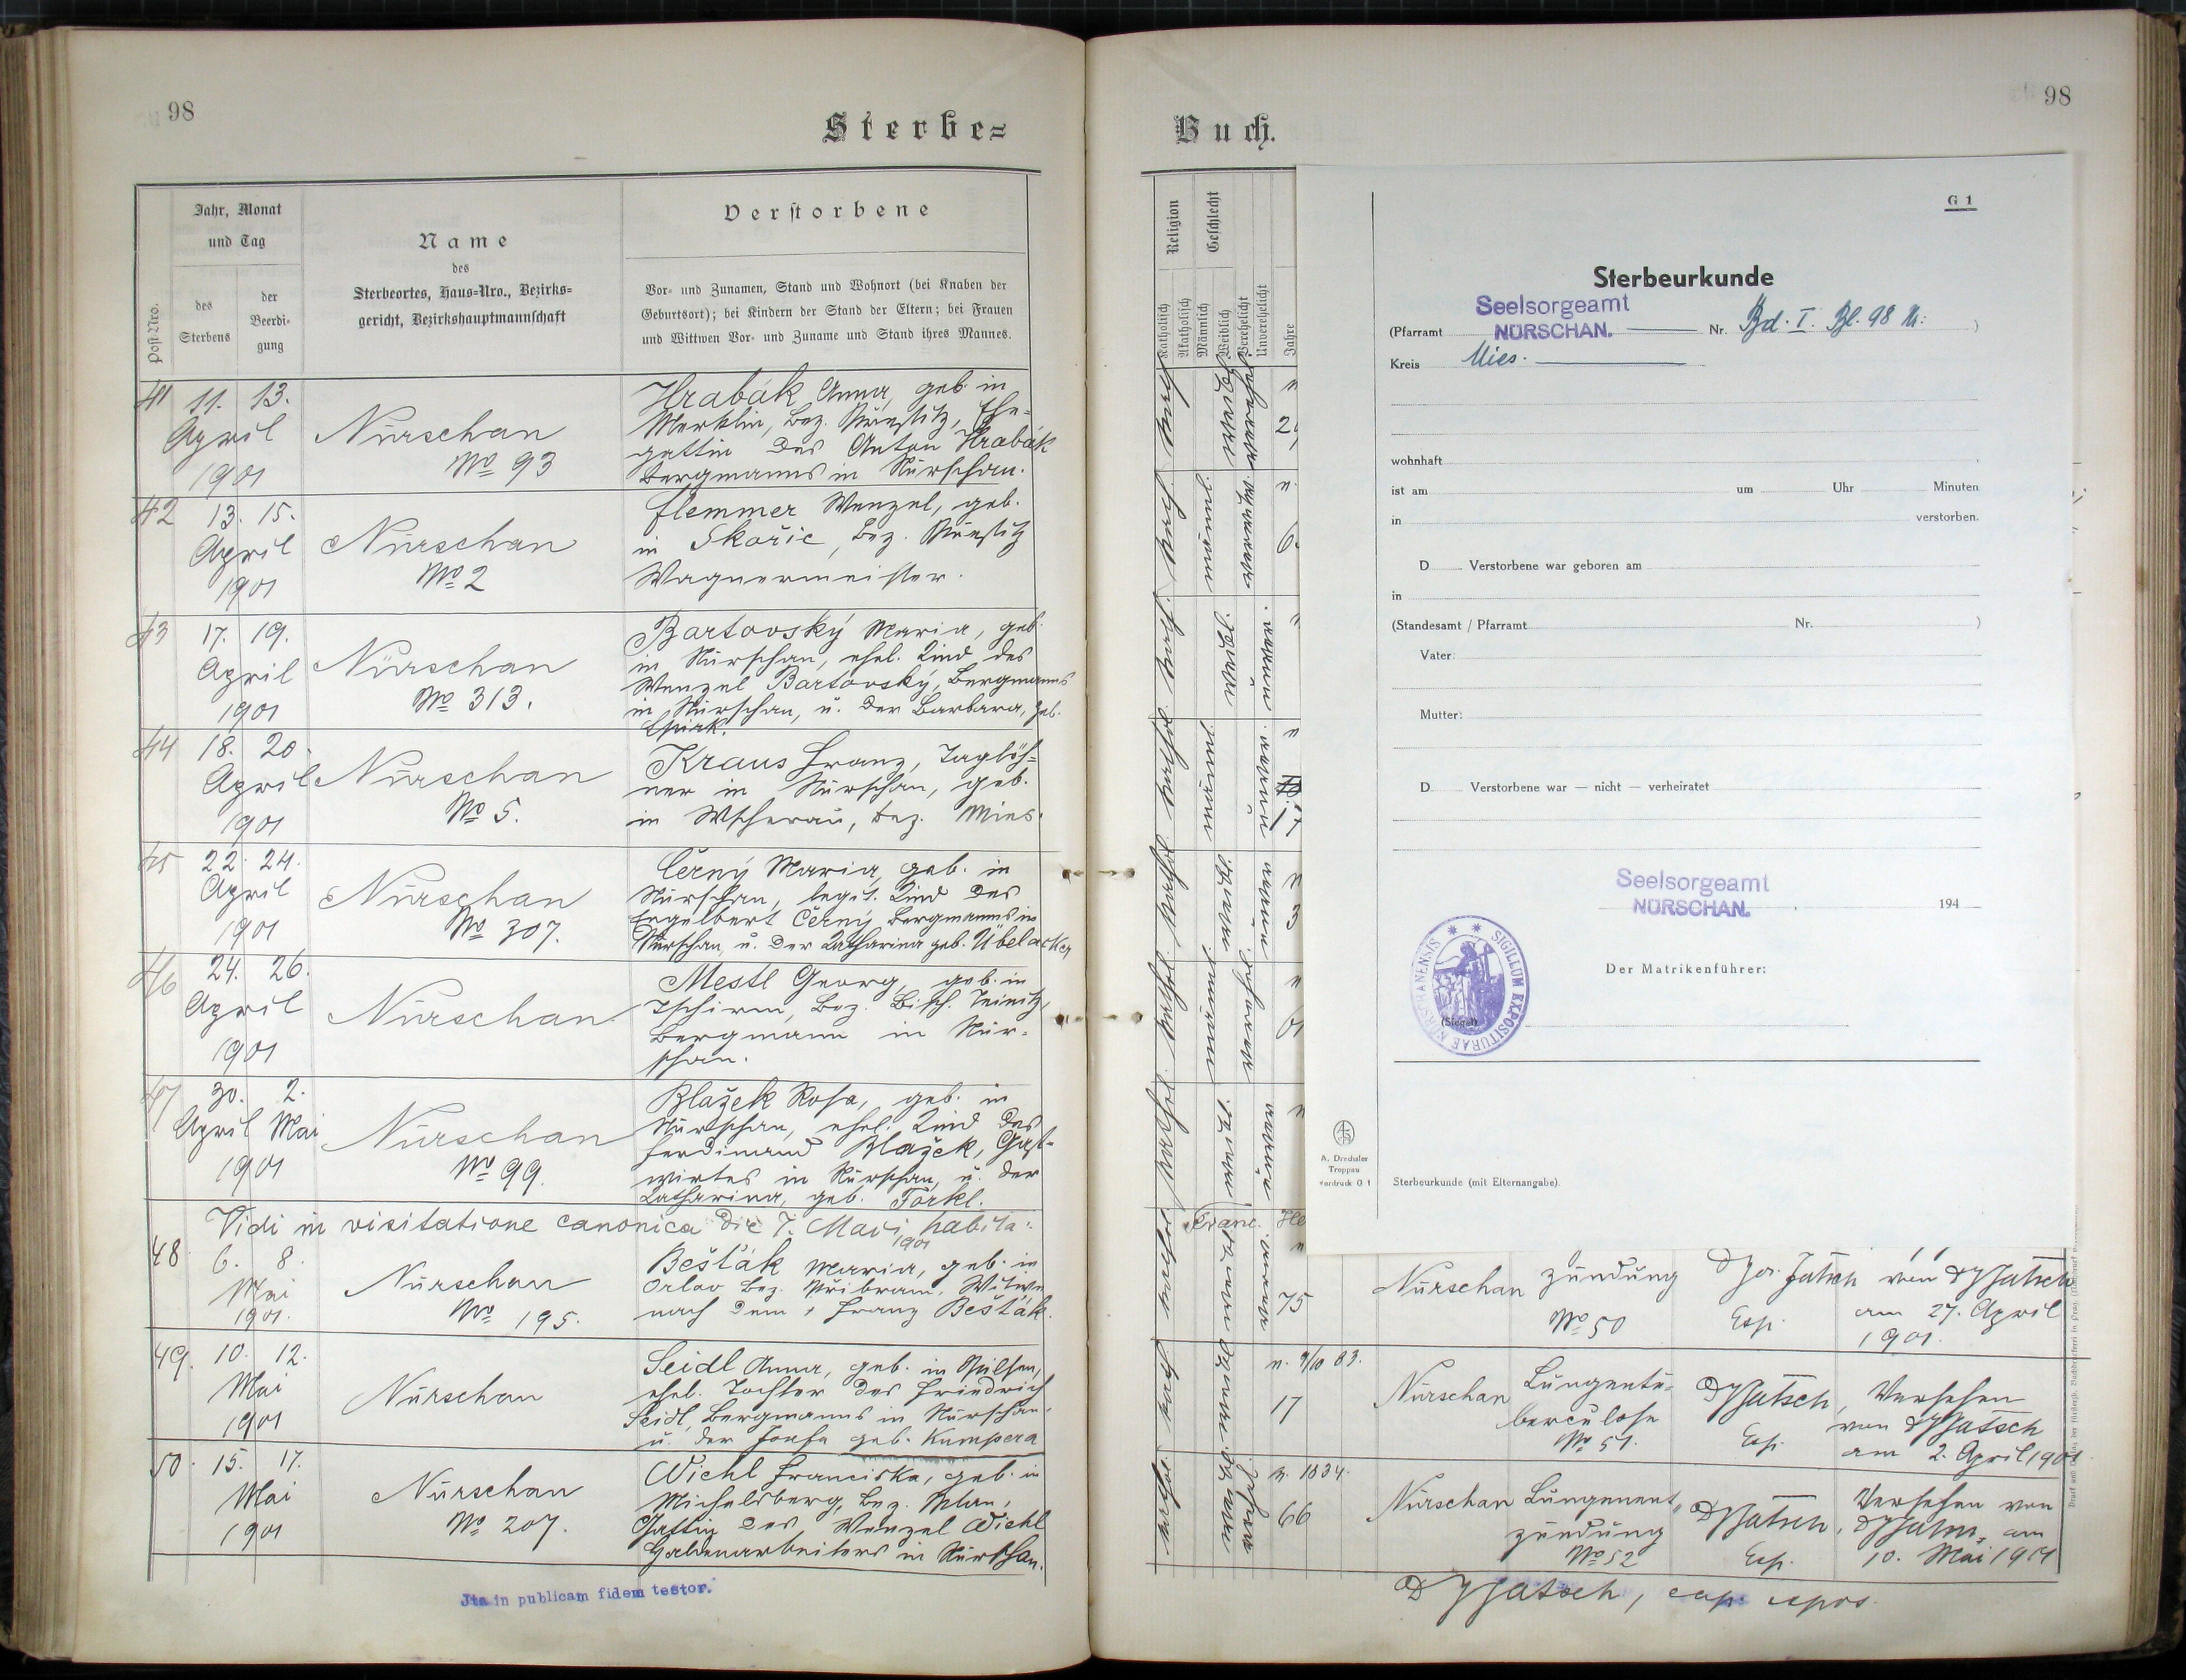 98
Sterbe=
Jahr, Monat
und Tag
Post-Nro.
des
Sterbens
der
Beerdi-
gung
Name
des
Sterbeortes, Haus-Nro., Bezirks-
gericht, Bezirkshauptmannschaft
Verstorbene
Vor- und Zunamen, Stand und Wohnort (bei Knaben der
Geburtsort); bei Kindern der Stand der Eltern; bei Frauen
und Wittwen Vor- und Zuname und Stand ihres Mannes.
41 11. 13.
April
1901
Nürschan
No 93
Hrabák Anna, geb. in
Merklin, Bez. Přestitz, Ehe-
gattin des Anton Hrabák
Bergmanns in Nürschan.
42 13. 15.
April
1901
Nürschan
No 2
Flemmer Wenzel, geb.
in Skořic, Bez. Přestitz
Wagnermeister.
43 17. 19.
April
1901
Nürschan
No 313.
Bartovský Maria, geb.
in Nürschan, ehel. Kind des
Wenzel Bartovský, Bergmanns
in Nürschan, u. der Barbara, geb.
44 18. 20.
April
1901
Nürschan
No 5.
Kraus Franz, Taglöh=
ner in Nürschan, geb.
in Wscherau, Bez. Mies.
45 22. 24.
April
1901
Nürschan
No 307.
Černý Maria, geb. in
Nürschan, legit. Kind des
Engelbert Černý Bergmanns in
Nürschan u. der Katharina geb. Übelacker
46 24. 26.
April
1901
Nürschan
Mestl Georg, geb. in
Tschirm, Bez. Bisch. Teinitz,
Bergmann in Nür-
schan.
47 30. 2.
April Mai
1901
Nürschan
No 99.
Blažek Rosa, geb. in
Nürschan, ehel. Kind des
Ferdinand Blažek, Gast-
wirtes in Nürschan, u. der
Katharina, geb. Törkl.
Vidi in visitatione canonica die 7. Maii 1901 habita.
48 6. 8.
Mai
1901.
Nürschan
No 195.
Bešťák Maria, geb. in
Orlov Bez. Přibram, Witwe
nach dem + Franz Bešťák.
49. 10. 12.
Mai
1901
Nürschan
Seidl Anna, geb. in Pilsen,
ehel. Tochter des Friedrich
Seidl, Bergmanns in Nürschan,
u. der Josefa geb. Kumpera
50. 15. 17.
Mai
1901
Nürschan
No 207.
Wiehl Franciska, geb. in
Michelsberg, Bez. Plan,
Gattin des Wenzel Wiehl
Haldenarbeiters in Nürschan.
Ita in publicam fidem testor.
98
Buch.
Religion
Geschlecht
Katholisch
Akatholisch
Männlich
Weiblich
Verehelicht
Unverehelicht
Jahre
G 1
Sterbeurkunde
Seelsorgeamt
(Pfarramt NÜRSCHAN. Nr. Bd. I. Bl. 98 N: )
Kreis Mies.
wohnhaft
ist am um Uhr Minuten
in verstorben.
D Verstorbene war geboren am
in
(Standesamt / Pfarramt Nr. )
Vater:
Mutter:
D Verstorbene war — nicht — verheiratet
Seelsorgeamt
NÜRSCHAN. 194
Der Matrikenführer:
SIGILLUM EXPOSITURAE NÜRSCHANENSIS
(Siegel)
A. Drechsler
Troppau
Vordruck G 1
Sterbeurkunde (mit Elternangabe).
75
Nürschan
zündung
No 50
Jos. Jatsch
Exp.
von Jatsch
am 27. April
1901.
n. 9/10 83.
17
Nürschan
Lungentu-
berculose
No 51.
Jatsch,
Exp.
Versehen
von Jatsch
am 2. April 1901
n. 1834.
66
Nürschan
Lungenent-
zündung
No 52
Jatsch,
Exp.
Versehen von
Jatsch am
10. Mai 1901
Jatsch, cap. expos.